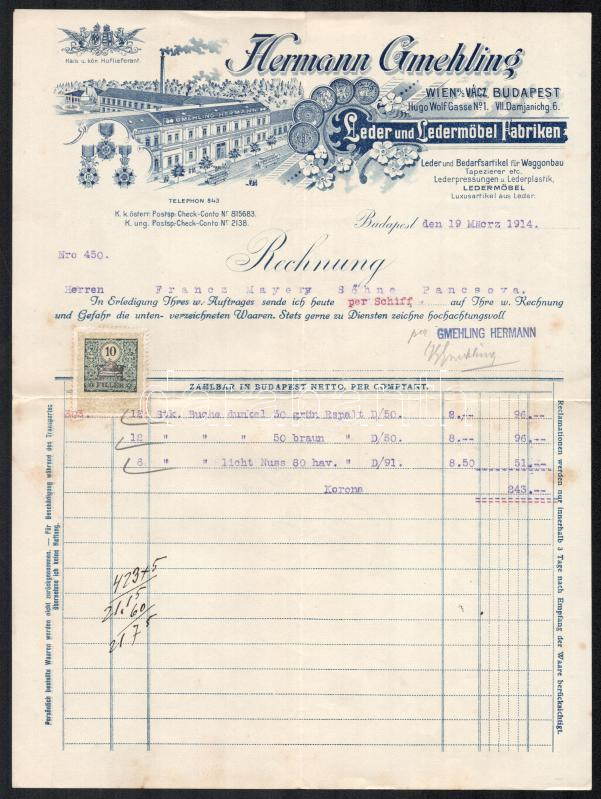 Kais. u. kön. Hoflieferant.
Hermann Gmehling
WIEN VÁCZ BUDAPEST
Hugo Wolf Gasse No 1. VII. Damjanichg. 6.
GMEHLING HERMANN
Leder und Ledermöbel Fabriken
Leder und Bedarfsartikel für Waggonbau
Tapezierer etc.
Lederpressungen u. Lederplastik,
LEDERMÖBEL
Luxusartikel aus Leder.
TELEPHON 843
K. k. österr. Postsp.-Check-Conto No 815683.
K. ung. Postsp.-Check-Conto No 2138.
Budapest den 19 Mäorz 1914.
Rechnung
Nro 450.
Herren Francz Mayery Söhne Pancsova.
In Erledigung Ihres w. Auftrages sende ich heute per Schiff auf Ihre w. Rechnung
und Gefahr die unten verzeichneten Waaren. Stets gerne zu Diensten zeichne hochachtungsvoll
per GMEHLING HERMANN
Gmehling
10
FILLER
ZAHLBAR IN BUDAPEST NETTO, PER COMPTANT.
303. 12 Stk. Buche dunkel 30 grün Rspalt D/50. 8,-- 96.--
12 " " " 50 braun " D/50. 8.-- 96.--
6 " " licht Nuss 80 hav. " D/91. 8.50 51.--
Korona 243.--
423+5
21.15
60
21 75
Persönlich bestellte Waaren werden nicht zurückgenommen. — Für Beschädigung während des Transportes
übernehme ich keine Haftung.
Reclamationen werden nur innerhalb 3 Tage nach Empfang der Waare berücksichtigt.